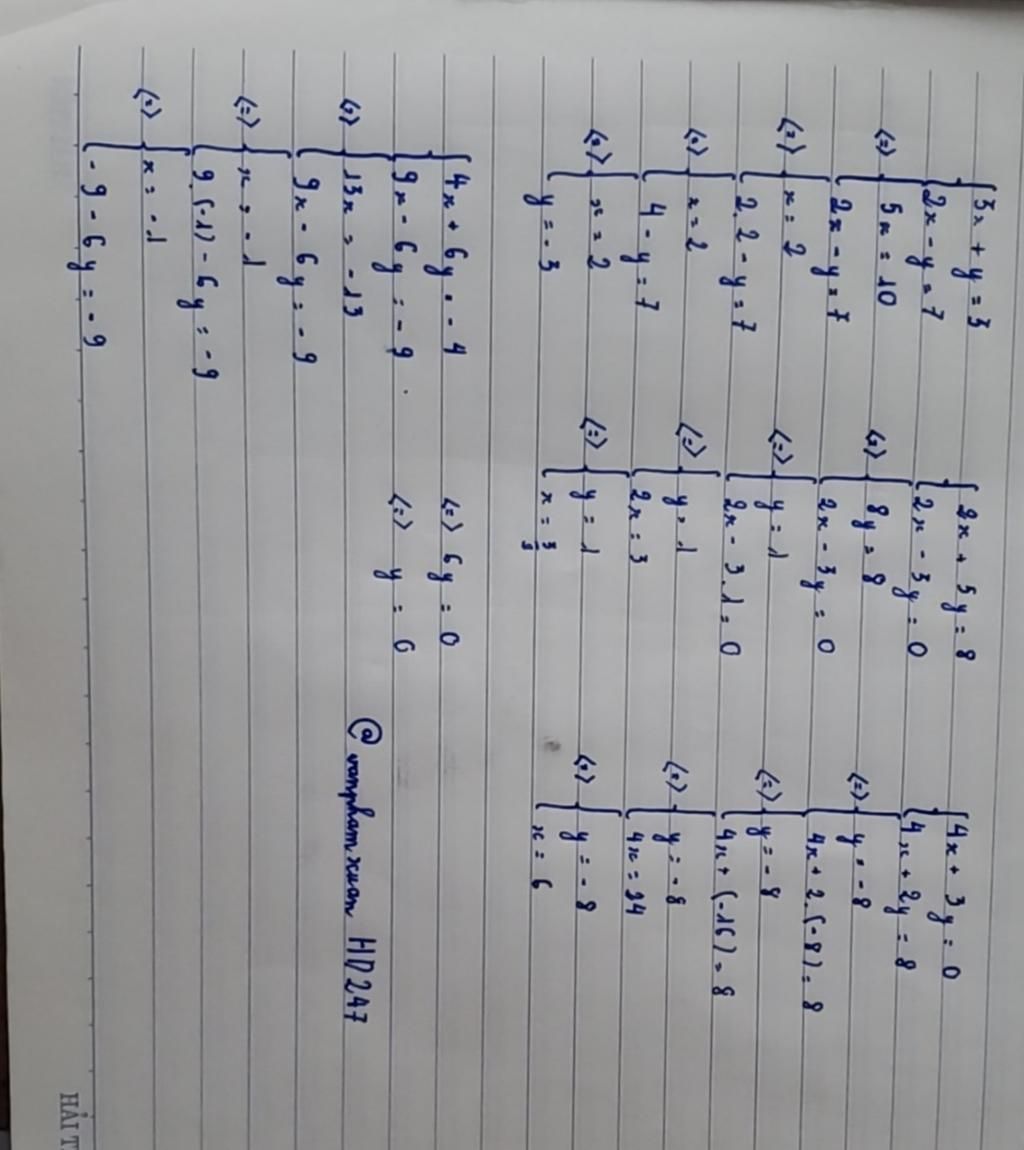 { 3x + y = 3
{ 2x - y = 7
<=> { 5x = 10
{ 2x - y = 7
<=> { x = 2
{ 2.2 - y = 7
<=> { x = 2
{ 4 - y = 7
<=> { x = 2
{ y = -3
{ 2x + 5y = 8
{ 2x - 3y = 0
<=> { 8y = 8
{ 2x - 3y = 0
<=> { y = 1
{ 2x - 3.1 = 0
<=> { y = 1
{ 2x = 3
<=> { y = 1
{ x = 3/
{ 4x + 3y = 0
{ 4x + 2y = 8
<=> { y = -8
{ 4x + 2.(-8) = 8
<=> { y = -8
{ 4x + (-16) = 8
<=> { y = -8
{ 4x = 24
<=> { y = -8
{ x = 6
{ 4x + 6y = -4
{ 9x - 6y = -9
<=> { 13x = -13
{ 9x - 6y = -9
<=> { x = -1
{ 9.(-1) - 6y = -9
<=> { x = -1
{ -9 - 6y = -9
<=> 6y = 0
<=> y = 0
@ vanphamxuan HD247
HẢI T